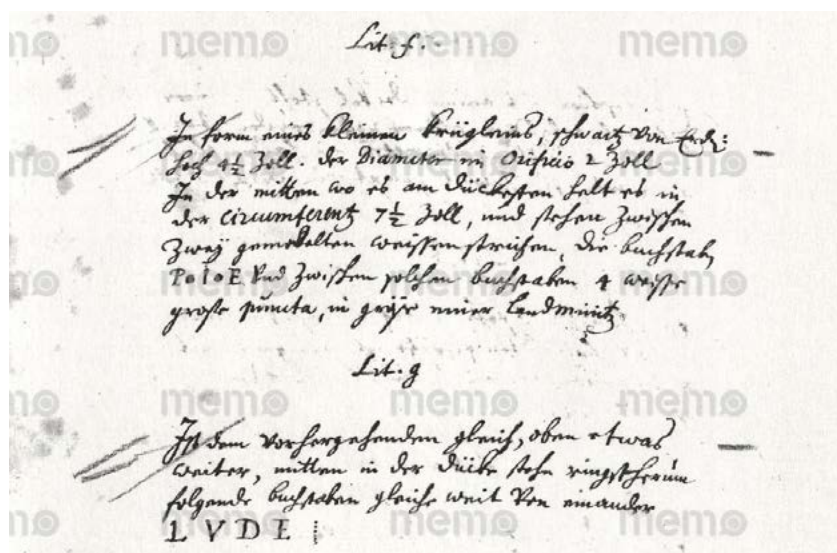 Lit. f.
In form eines kleinen krügleins, schwartz von Erd:
hoch 4½ Zoll. der Diameter im Orificio 2 Zoll
In der mitten wo es am dückesten helt es in
der circumferentz 7½ Zoll, und stehen zwischen
zweÿ gemahlten weissen strichen, die buchstabn
P o I o E und zwischen solchen buchstaben 4 weisse
grosse puncta, in größe einer Landmüntz
Lit. g
Ist dem vorhergehenden gleich, oben etwas
weiter, mitten in der dücke stehn ringsherum
folgende buchstaben gleiche weit von einander
L V D E